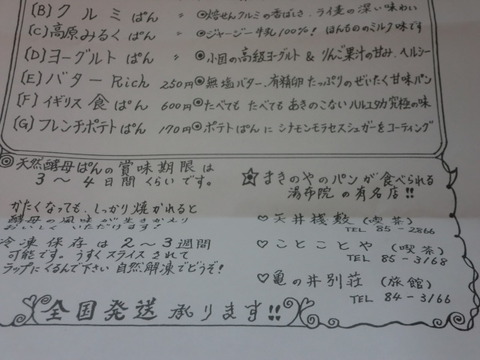 (B) クルミぱん 〃 ◎焙せんクルミの香ばしさ、ライ麦の深い味わい
(C) 高原みるくぱん 〃 ◎ジャージー牛乳100%! ほんもののミルク味です
(D) ヨーグルトぱん 〃 ◎小国の高級ヨーグルト & りんご果汁の甘み、ヘルシー
(E) バターRich 250円 ◎無塩バター、有精卵たっぷりのぜいたく甘味パン
(F) イギリス食ぱん 600円 ◎たべてもたべてもあきのこないハルエタカ究極の味
(G) フレンチポテトぱん 170円 ◎ポテトぱんにシナモンモラセスシュガーをコーティング
◎天然酵母ぱんの賞味期限は
3〜4日間くらいです。
かたくなっても、しっかり焼がれると
酵母の風味が生きかえり
おいしくいただけます
冷凍保存は2〜3週間
可能です。うすくスライスされて
ラップにくるんで下さい 自然解凍でどうぞ!
まきのやのパンが食べられる
湯布院の有名店!!
♡天井棧敷(喫茶)
TEL 85-2866
♡ことことや (喫茶)
TEL 85-3168
♡亀の井別荘 (旅館)
TEL 84-3166
全国発送承ります!!